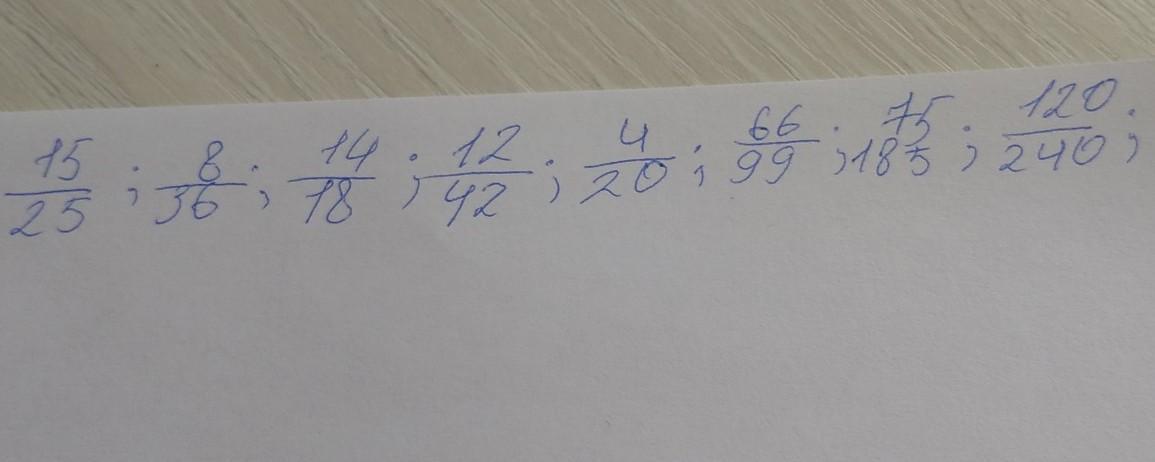 15/25 ; 8/36 ; 14/18 ; 12/42 ; 4/20 ; 66/99 ; 75/185 ; 120/240 ;